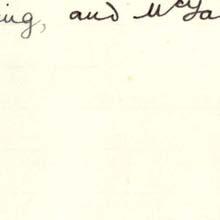 ing, and McTa